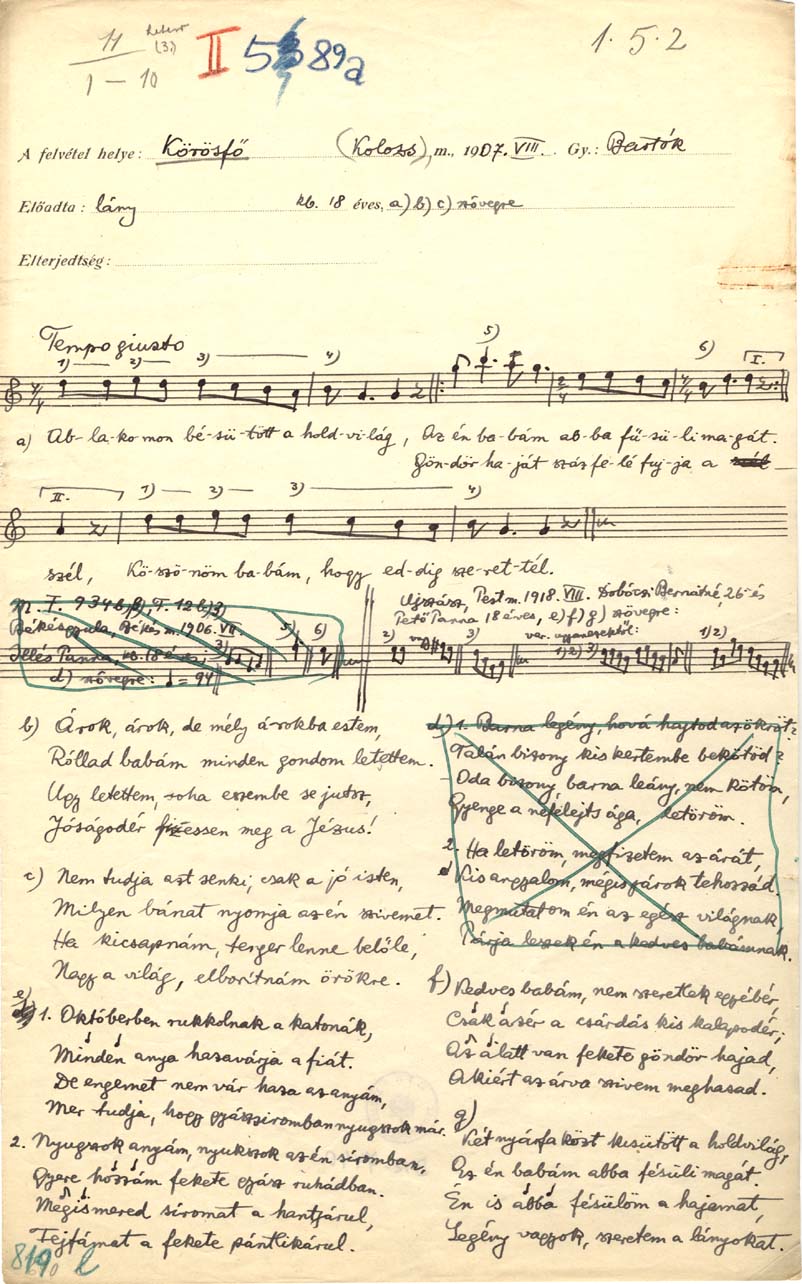 11 1–10 (3) II 5 89a 1.5.2
A felvétel helye: Körösfő (Kolozs), m., 1907. VIII. Gy.: Bartók
Előadta: lány kb. 18 éves, a) b) c) szövegre
Elterjedtség:
Tempo giusto
1) 2) 3) 4) 5) 6) I.
a) Ab-la-ko-mon bé-sü-tött a hold-vi-lág, Az én ba-bám ab-ba fű-sü-li ma-gát.
Gön-dör ha-ját száz fe-lé fuj-ja a szél
II. 1) 2) 3) 4)
szél, Kö-szö-nöm ba-bám, hogy ed-dig sze-ret-tél.
M. F. 934b), F. 12b)
Békésgyula, Békés m. 1906. VII.
Illés Panna, kb. 18 éves;
d) szövegre: ♩= 94
3) 5) 6)
Ujszász, Pest m. 1918. VIII. Dobóczi Bernátné, 26- és
Pető Panna 18 éves, e) f) g) szövegre:
var. ugyanezektől:
2) 3) 1) 2) 3) 1) 2)
b) Árok, árok, de mély árokba estem,
Róllad babám minden gondom letettem.
Ugy letettem, soha eszembe se jutsz,
Jóságodér fizessen meg a Jézus!
c) Nem tudja azt senki, csak a jó isten,
Milyen bánat nyomja az én szivemet.
Ha kicsapnám, tenger lenne belőle,
Nagy a világ, elborítnám örökre.
e) 1. Októberben rukkolnak a katonák,
Minden anya hazavárja a fiát.
De engemet nem vár haza az anyám,
Mer tudja, hogy gyászsiromban nyugszok már.
2. Nyugszok anyám, nyukszok az én siromban,
Gyere hozzám fekete gyász ruhádban.
Megismered siromat a hantjárul,
Fejfámat a fekete pántlikárul.
d) 1. Barna legény, hová hajtod az ökröt?
Talán bizony kis kertembe bekötöd?
Oda bizony, barna leány, nem kötöm,
Gyenge a nefelejts ága, letöröm.
2. Ha letöröm, megfizetem az árát,
Kis angyalom, mégis járok tehozzád.
Megmutatom én az egész világnak,
Párja leszek én a kedves babámnak.
f) Kedves babám, nem szeretlek egyébér,
Csak azér a csárdás kis kalapodér;
Az alatt van fekete göndör hajad,
Akiért az árva szivem meghasad.
g) Két nyárfa közt kisütött a holdvilág,
Az én babám abba fésüli magát.
Én is abba fésülöm a hajamat,
Legény vagyok, szeretem a lányokat.